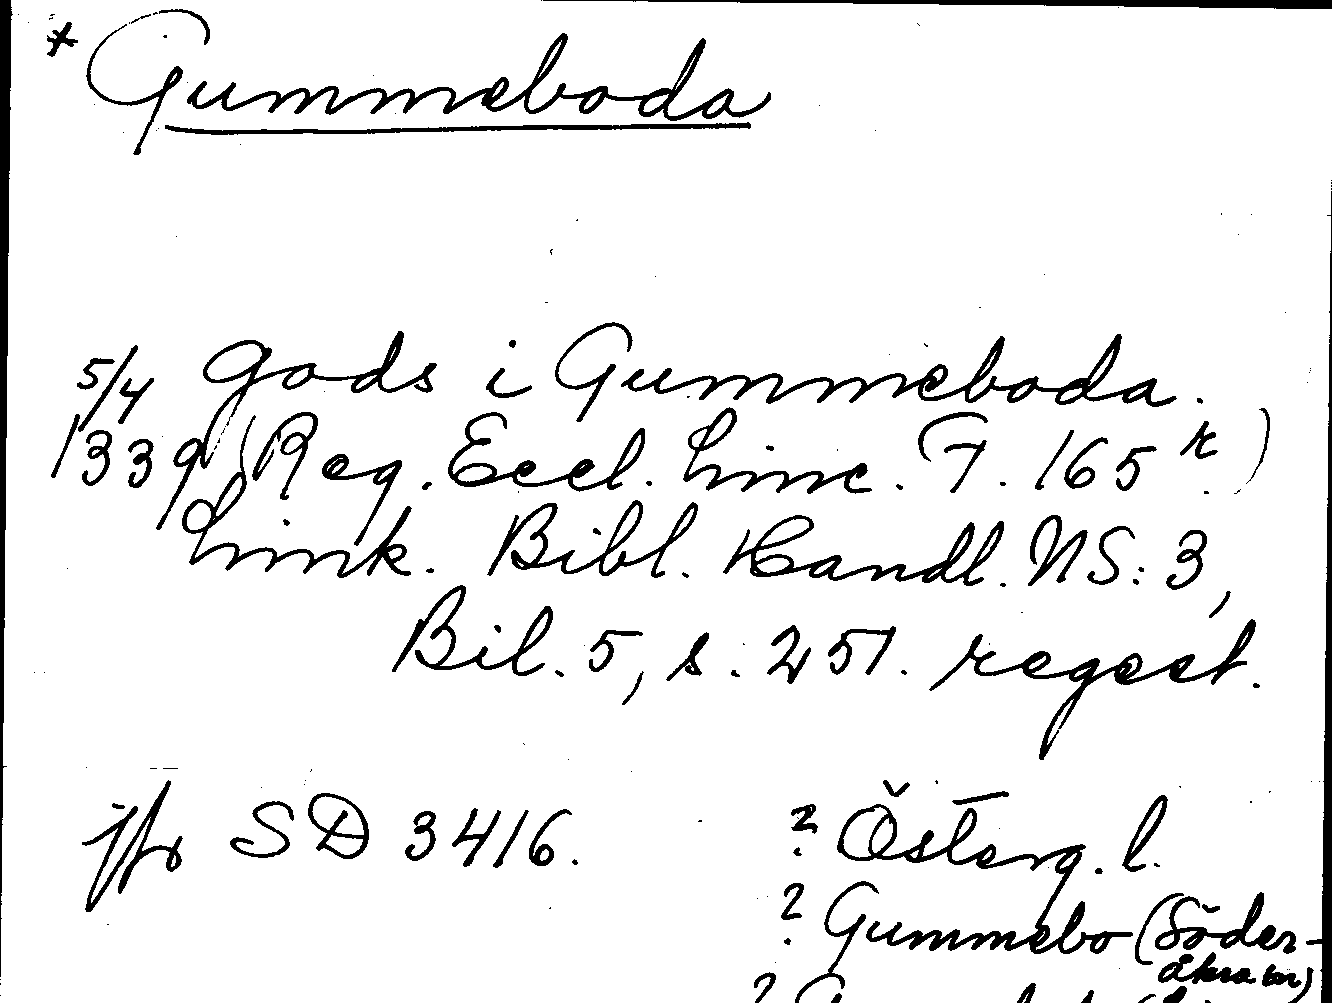 * Gummeboda
5/4 gods i Gummeboda.
1339 (Reg. Eccl. Linc. F. 165 r.)
Link. Bibl. Handl. NS: 3,
Bil. 5, s. 251. regest.
jfr SD 3416.
? Österg. l.
? Gummebo (Söder-
åkra sn)
?